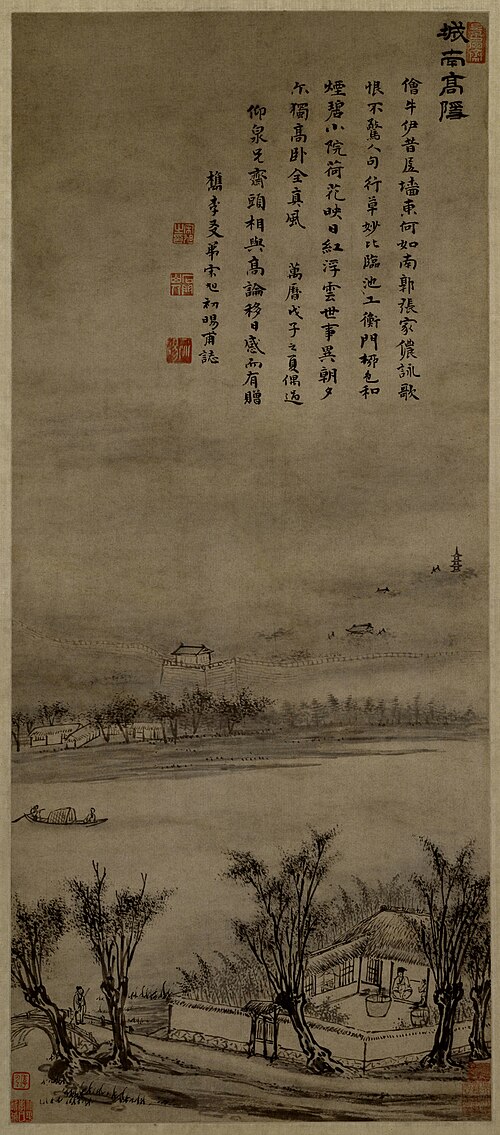 城南高隱
儈牛伊昔居墻東何如南郭張家儂詠歌
恨不驚人句行草妙比臨池工衡門栁色和
煙碧小院荷花映日紅浮雲世事異朝夕
尔獨高卧全真風 萬曆戊子之夏偶過
仰泉兄齋頭相與高論移日感而有贈
檇李友弟宋旭初暘甫誌